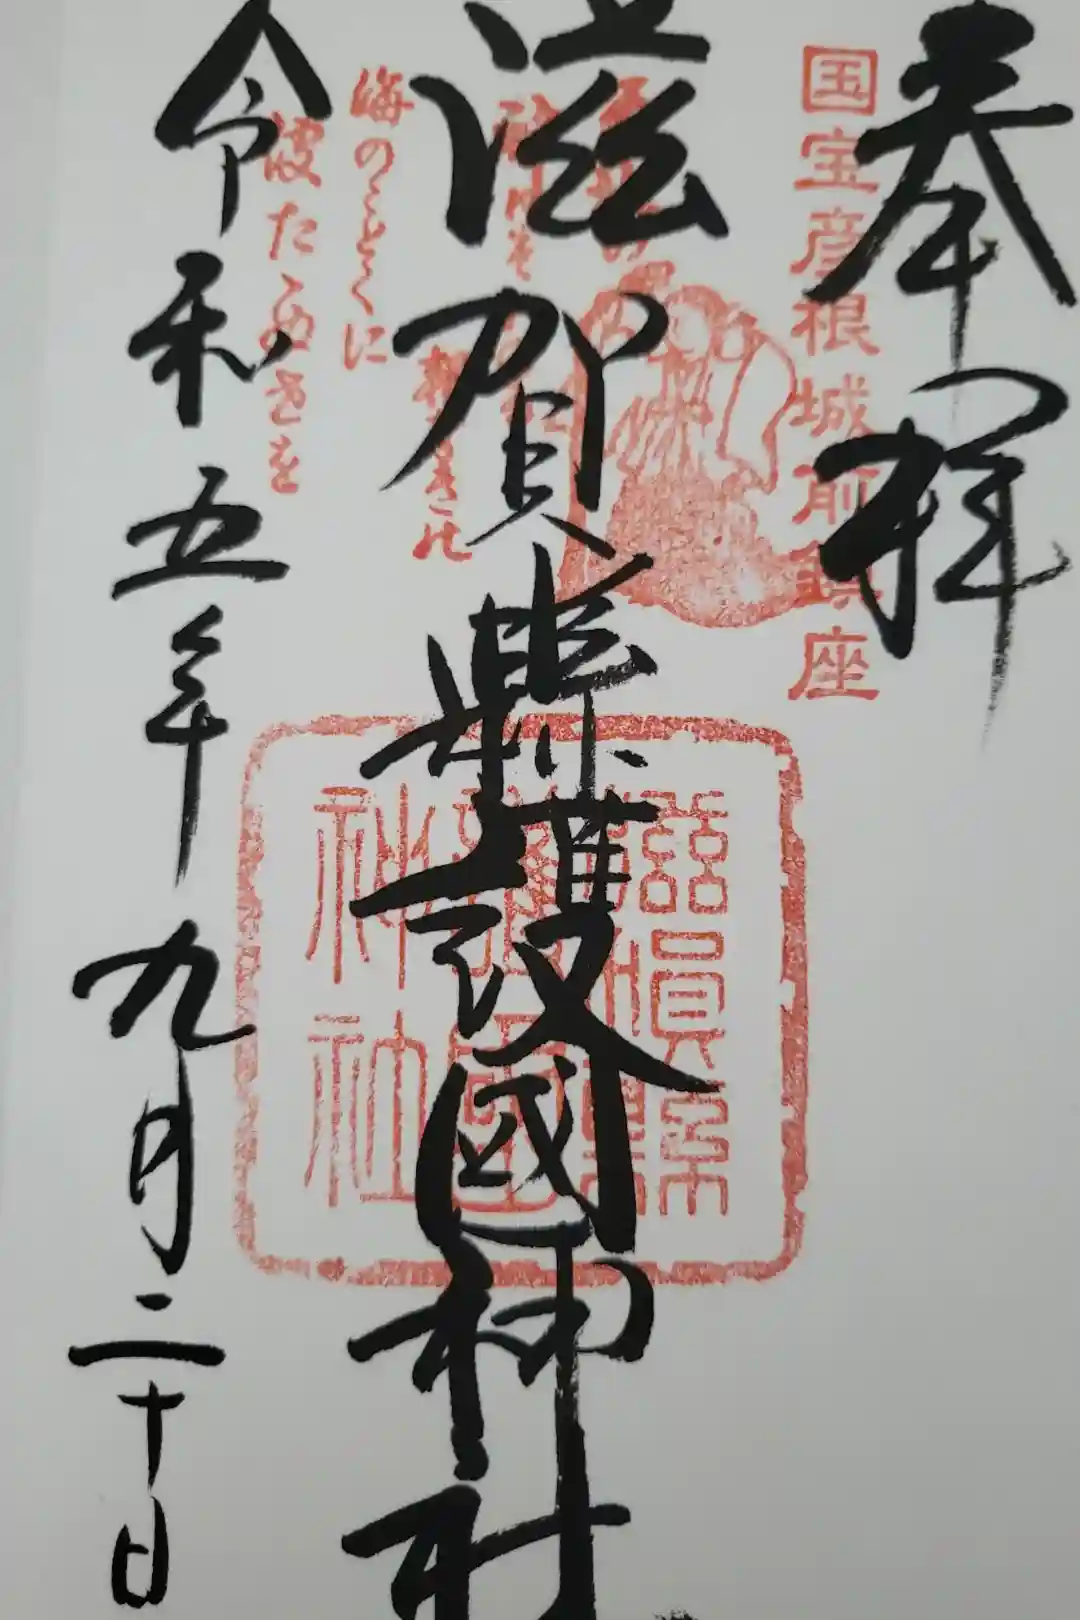 奉拝
国宝彦根城前鎮座
滋賀縣護國神社
海のことくに
波たゝぬさを
滋賀縣
護國
神社
令和五年九月二十日